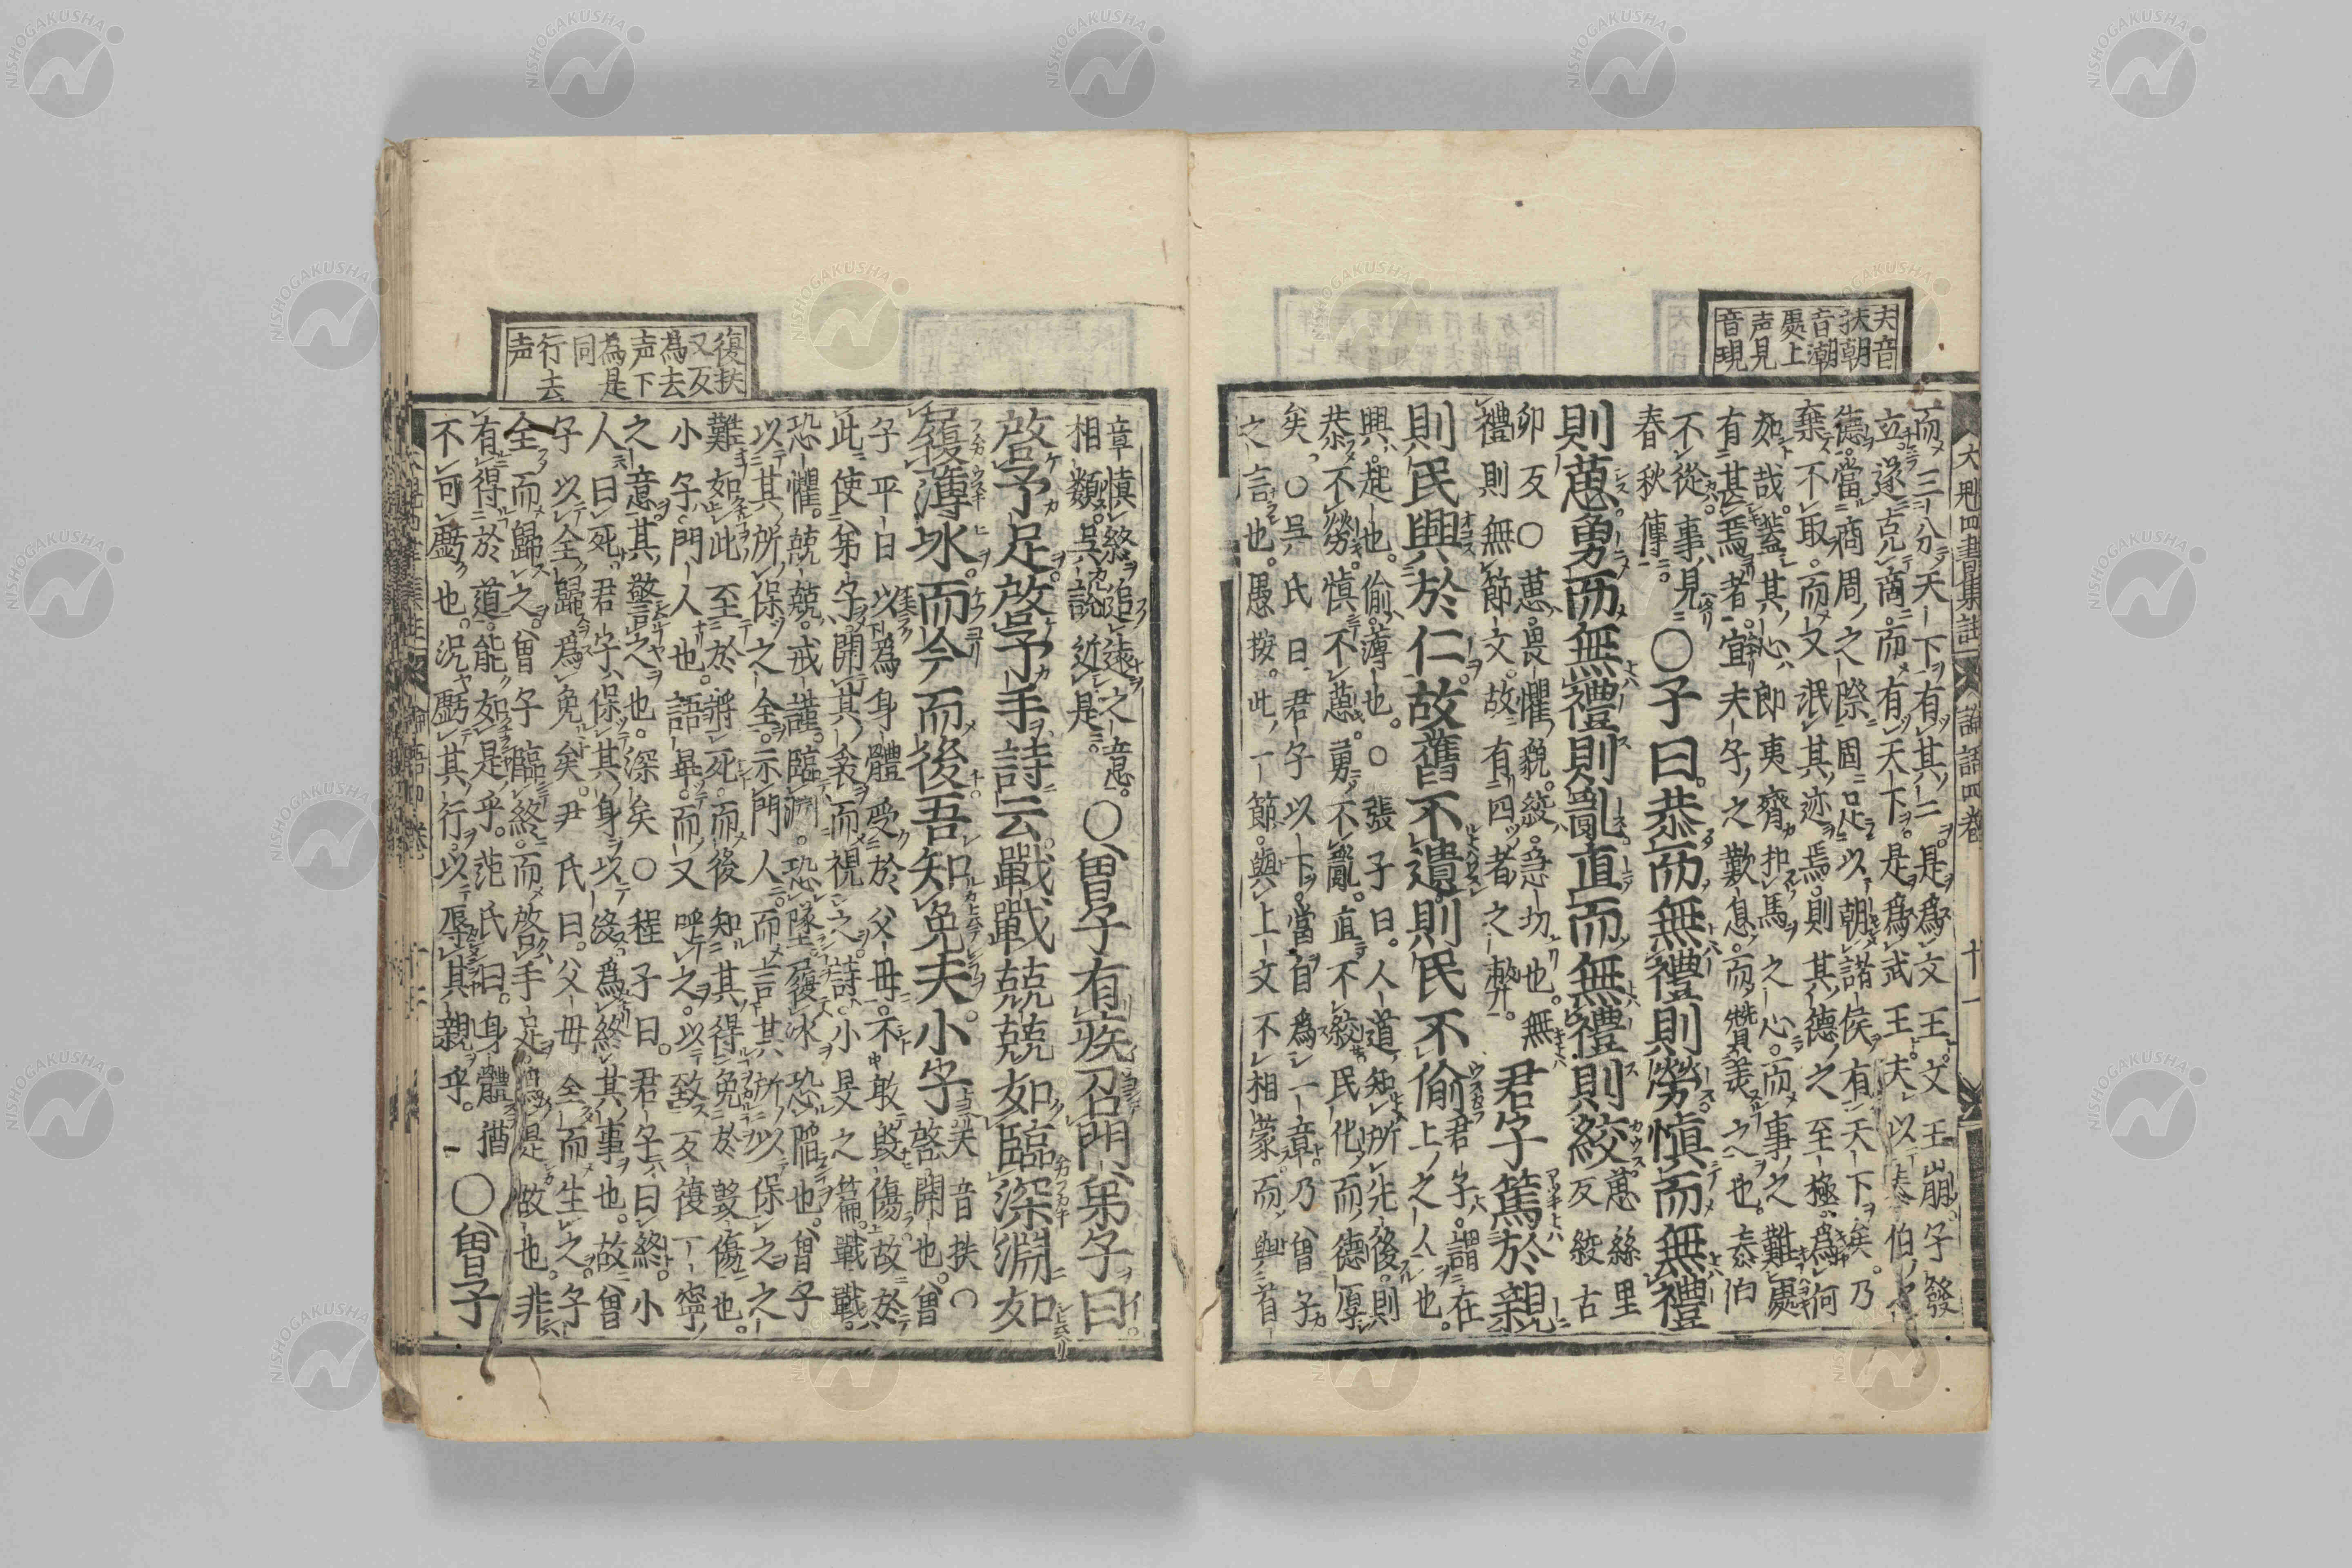 夫音
扶朝
音潮
處上
声見
音現
大魁四書集註 論語四卷 十一
而三分天下有其二是爲文王文王崩子發
立遂克商而有天下是爲武王夫以泰伯之
德當商周之際固足以朝諸侯有天下矣乃
棄不取而又泯其迹焉則其德之至極爲何
如哉蓋其心即夷齊扣馬之心而事之難處
有甚焉者宜夫子之歎息而賛美之也泰伯
不從事見
春秋傳
○子曰恭而無禮則勞慎而無禮
則葸勇而無禮則亂直而無禮則絞
葸絲里
反絞古
卯反○葸畏懼貌絞急切也無
禮則無節文故有四者之弊
君子篤於親
則民興於仁故舊不遺則民不偷
君子謂在
上之人也
興起也偷薄也○張子曰人道知所先後則
恭不勞慎不葸勇不亂直不絞民化而德厚
矣○吳氏曰君子以下當自爲一章乃曾子
之言也愚按此一節與上文不相蒙而與首
復扶
又反
為去
声下
為是
同
行去
声
章慎終追遠之意
相類吳說近是
○曾子有疾召門弟子曰
啓予足啓予手詩云戰戰兢兢如臨深淵如
履薄冰而今而後吾知免夫小子
夫音扶○
啓開也曾
子平日以爲身體受於父母不敢毀傷故於
此使弟子開其衾而視之詩小旻之篇戰戰
恐懼兢兢戒謹臨淵恐墜履冰恐陷也曾子
以其所保之全示門人而言其所以保之之
難如此至於將死而後知其得免於毀傷也
小子門人也語畢而又呼之以致反復丁寧
之意其警之也深矣○程子曰君子曰終小
人曰死君子保其身以没爲終其事也故曾
子以全歸爲免矣尹氏曰父母全而生之子
全而歸之曾子臨終而啓手足爲是故也非
有得於道能如是乎范氏曰身體猶
不可虧也況虧其行以辱其親乎
○曾子